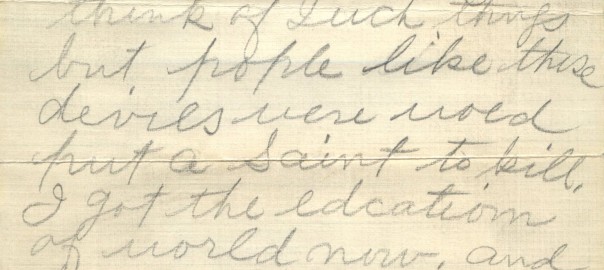 think of such things
but pople like these
devies were woed
put a saint to kill.
I got the edcatiom
of world now, and